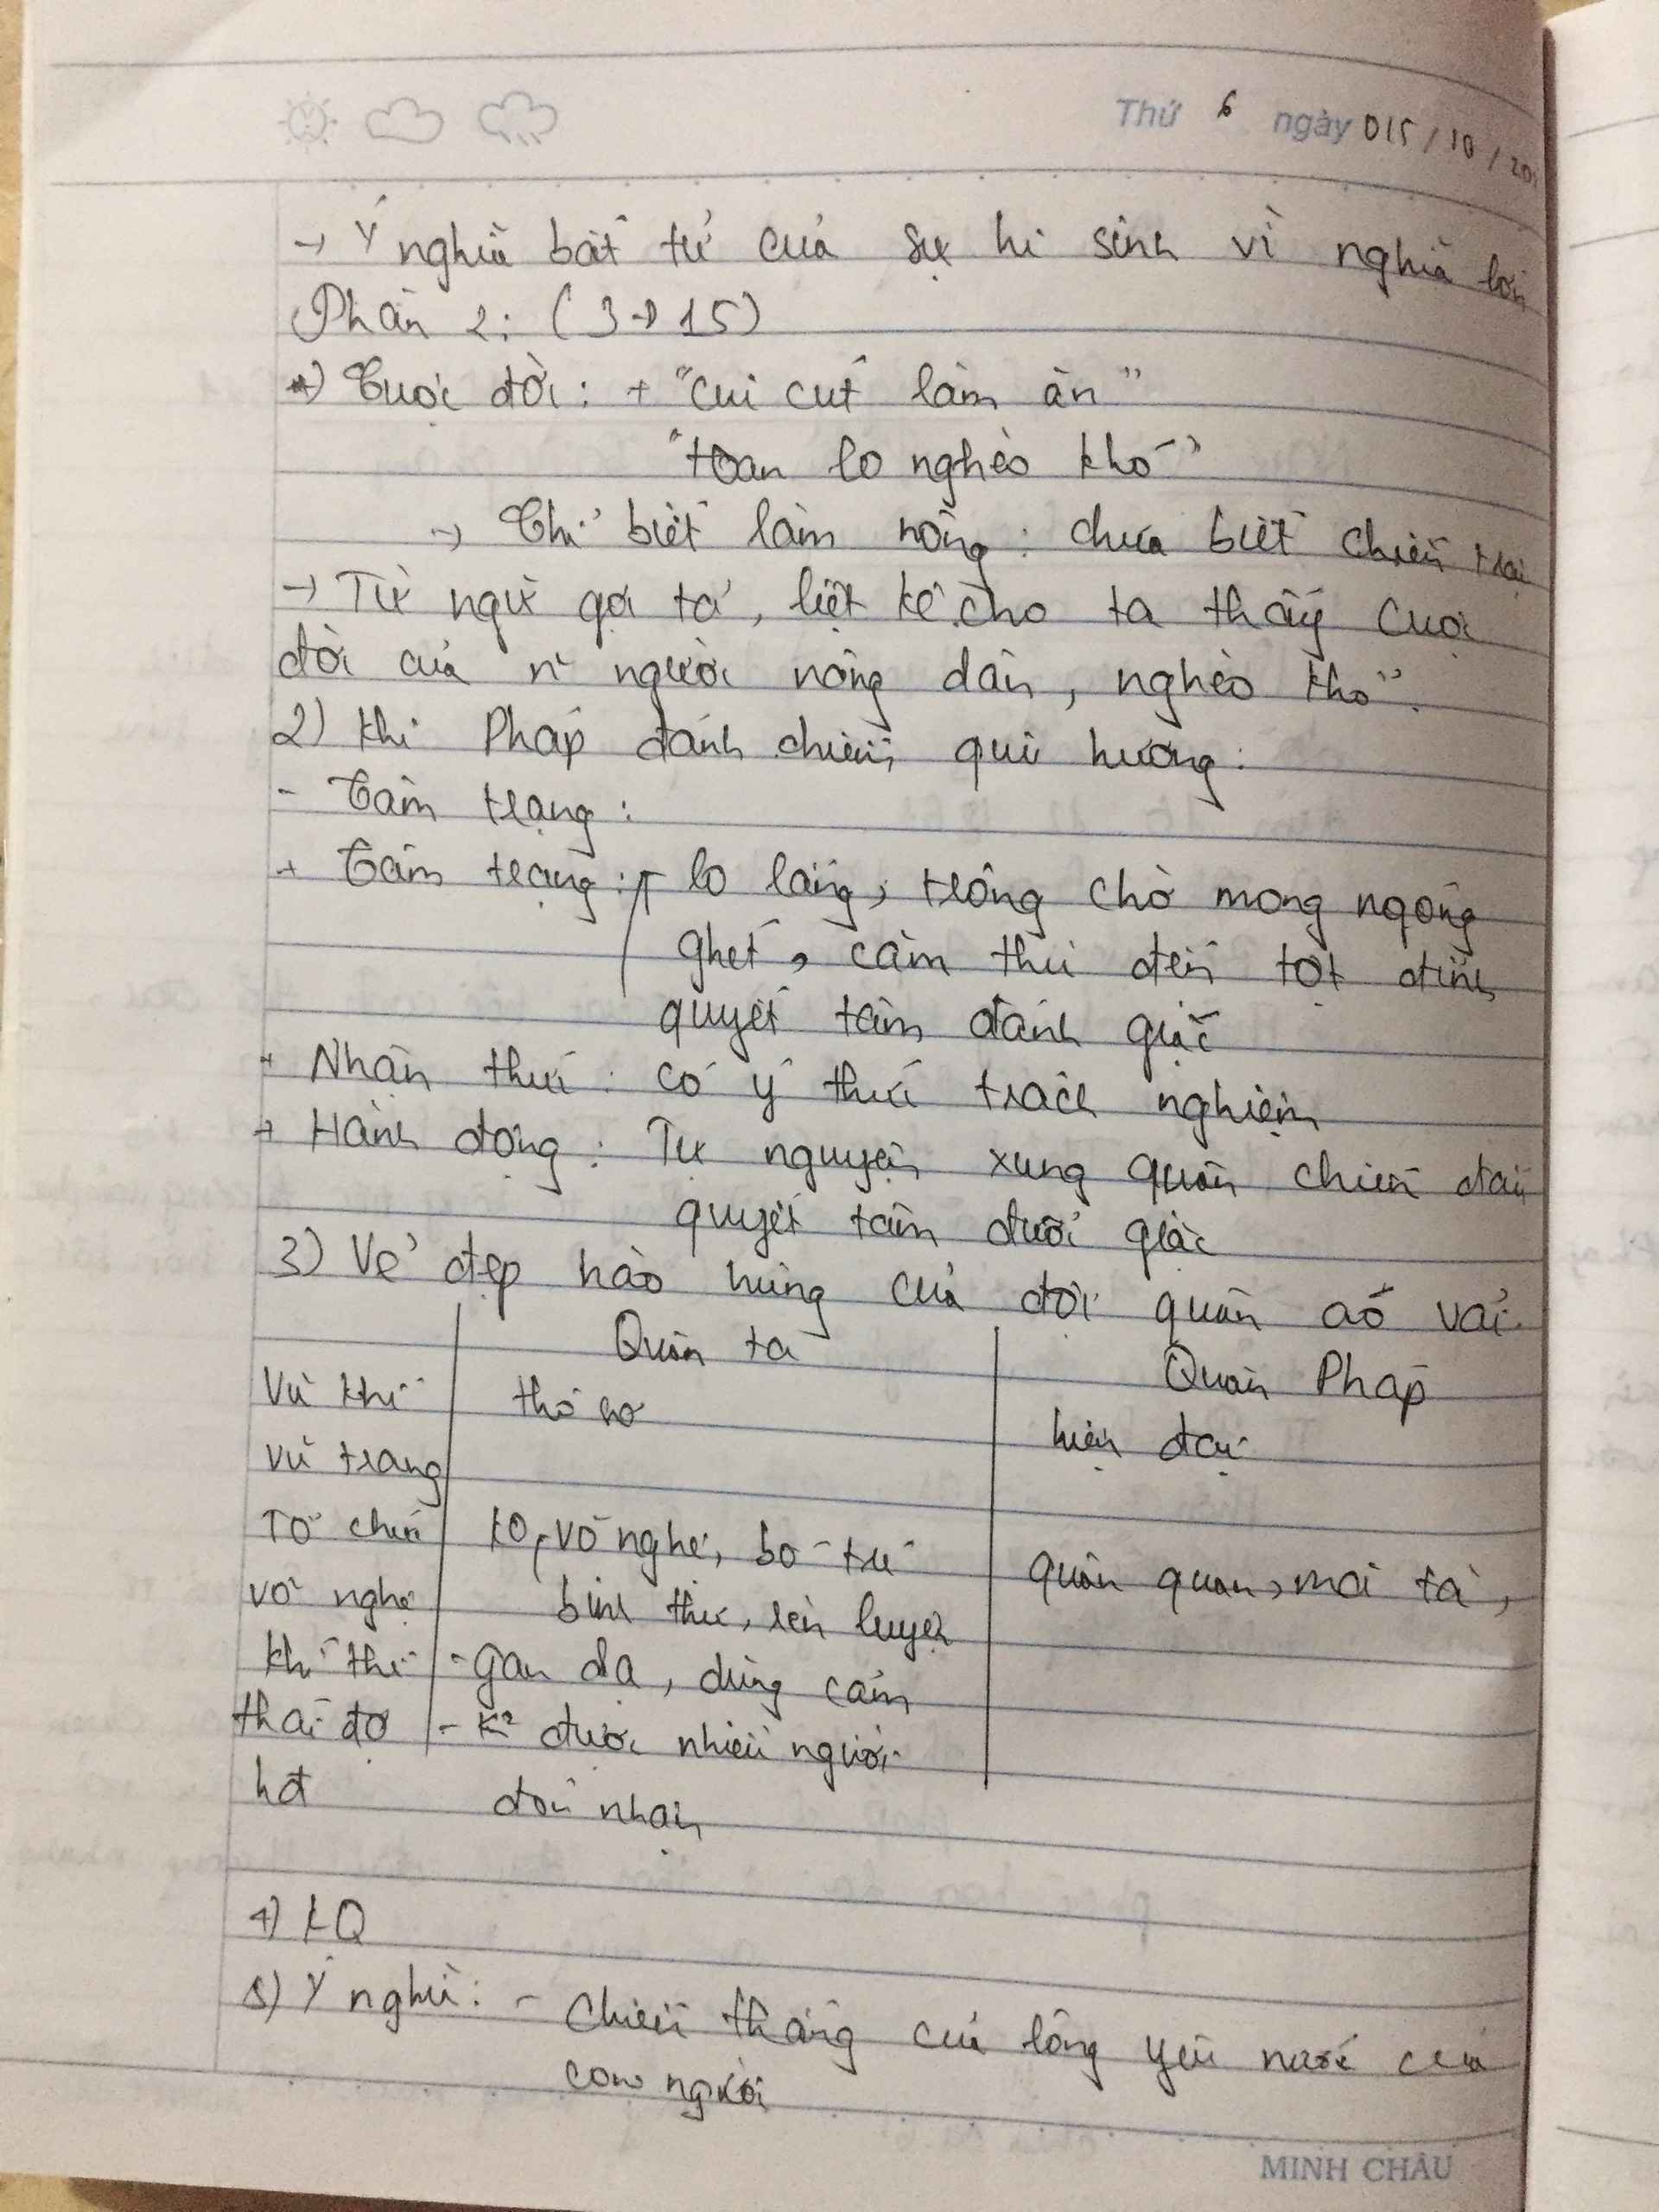 Thứ 6 ngày 015/10/20
→ Ý nghĩa bất tử của sự hi sinh vì nghĩa lớn
Phần 2: (3→15)
1) Cuộc đời: + "Cui cút làm ăn"
"toan lo nghèo khó"
→ Chỉ biết làm nông: chưa biết chiến trận
→ Từ ngữ gợi tả, liệt kê cho ta thấy cuộc
đời của n~ người nông dân, nghèo khổ.
2) Khi Pháp đánh chiếm quê hương:
- Tâm trạng:
+ Tâm trạng: lo lắng, trông chờ mong ngóng
ghét, căm thù đến tột đỉnh
quyết tâm đánh giặc
+ Nhận thức: có ý thức trách nghiệm
+ Hành động: Tự nguyện xung quân chiến đấu
quyết tâm đuổi giặc
3) Vẻ đẹp hào hùng của đội quân áo vải
Quân ta Quân Pháp
Vũ khí thô sơ hiện đại
vũ trang
Tổ chức ko, võ nghệ, bố trí quân quan, mã tà,
võ nghệ binh thư, rèn luyện
khí thế - gan dạ, dũng cảm
thái độ - K² được nhiều người
hđ đón nhận
4) KQ
5) Ý nghĩa: - Chiến thắng của lòng yêu nước của
con người
MINH CHÂU